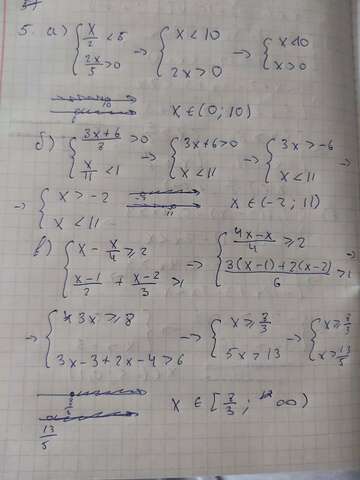 5. а) { x/2 < 5 ; 2x/5 > 0 → { x < 10 ; 2x > 0 → { x < 10 ; x > 0
10
0
x ∈ (0; 10)
б) { (3x+6)/3 > 0 ; x/11 < 1 → { 3x+6 > 0 ; x < 11 → { 3x > -6 ; x < 11 →
→ { x > -2 ; x < 11
-2
11
x ∈ (-2; 11)
в) { x - x/4 ≥ 2 ; (x-1)/2 + (x-2)/3 > 1 → { (4x-x)/4 ≥ 2 ; (3(x-1)+2(x-2))/6 > 1 →
→ { 3x ≥ 8 ; 3x-3+2x-4 > 6 → { x ≥ 8/3 ; 5x > 13 → { x ≥ 8/3 ; x > 13/5
8/3
13/5
x ∈ [8/3; ∞)